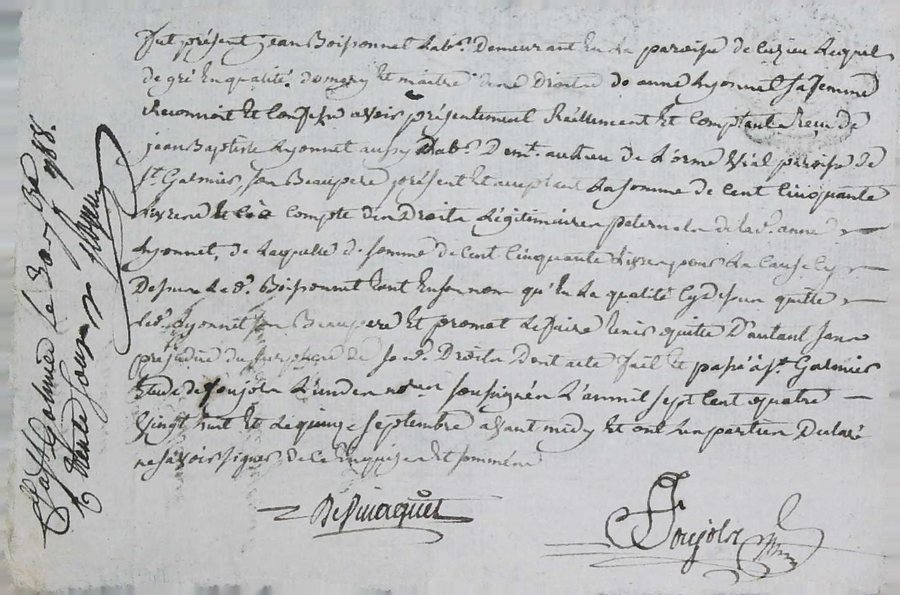 fut présent jean Boissonnel Lab.r Demeurant En La paroisse de Cuzieu Lequel
de gré En qualité de mary et maitre des Droits de anne Lyonnet sa femme
Reconnoit et Confesse avoir présentement Réellement Et Comptant Reçu de
jean Baptiste Lyonnet aussy Lab.r Dem.t au lieu de L'orme paroisse de
S.t Galmier son Beaupere présent Et acceptant La somme de Cent Cinquante
Livres Et Cé à Compte des Droits Légitimaires paternels de lad. anne
Lyonnet, de Laquelle d. somme de Cent Cinquante Livres pour La Cause Cy
Dessus Led. Boissonnel tant En son nom qu'En La qualité Cy dessus quitte
led. Lyonnet son Beaupere Et promet Le faire tenir quitte D'autant sans
préjudice du surplus de sesd. Droits dont acte fait Et passé à S.t Galmier
Etude de foujols L'un des no.res soussignés L'an mil sept Cent quatre
Vingt huit Et Le quinze septembre avant midy Et ont Les parties Déclaré
ne savoir signer de Ce Enquises Et sommées
foujols
à S.t Galmier le 30 7bre 1788.
trente sous